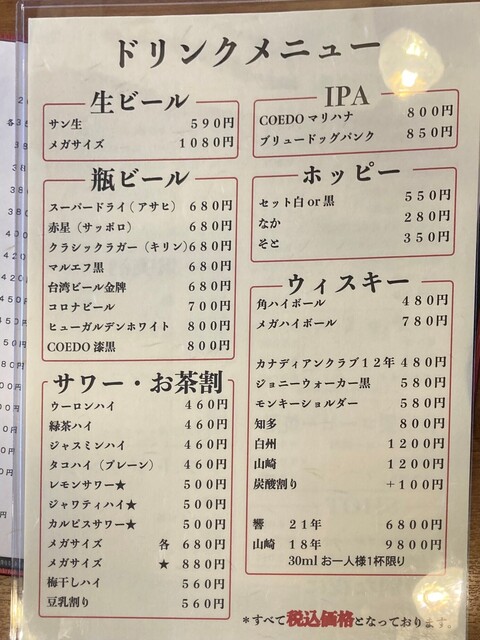 ドリンクメニュー
生ビール
サン生 590円
メガサイズ 1080円
瓶ビール
スーパードライ(アサヒ) 680円
赤星(サッポロ) 680円
クラシックラガー(キリン)680円
マルエフ黒 680円
台湾ビール金牌 680円
コロナビール 700円
ヒューガルデンホワイト 800円
COEDO漆黒 800円
サワー・お茶割
ウーロンハイ 460円
緑茶ハイ 460円
ジャスミンハイ 460円
タコハイ(プレーン) 460円
レモンサワー★ 500円
ジャワティハイ★ 500円
カルピスサワー★ 500円
メガサイズ 各 680円
メガサイズ ★ 880円
梅干しハイ 560円
豆乳割り 560円
IPA
COEDOマリハナ 800円
ブリュードッグパンク 850円
ホッピー
セット白or黒 550円
なか 280円
そと 350円
ウィスキー
角ハイボール 480円
メガハイボール 780円
カナディアンクラブ12年 480円
ジョニーウォーカー黒 580円
モンキーショルダー 580円
知多 800円
白州 1200円
山崎 1200円
炭酸割り +100円
響 21年 6800円
山崎 18年 9800円
30mlお一人様1杯限り
*すべて税込価格となっております。